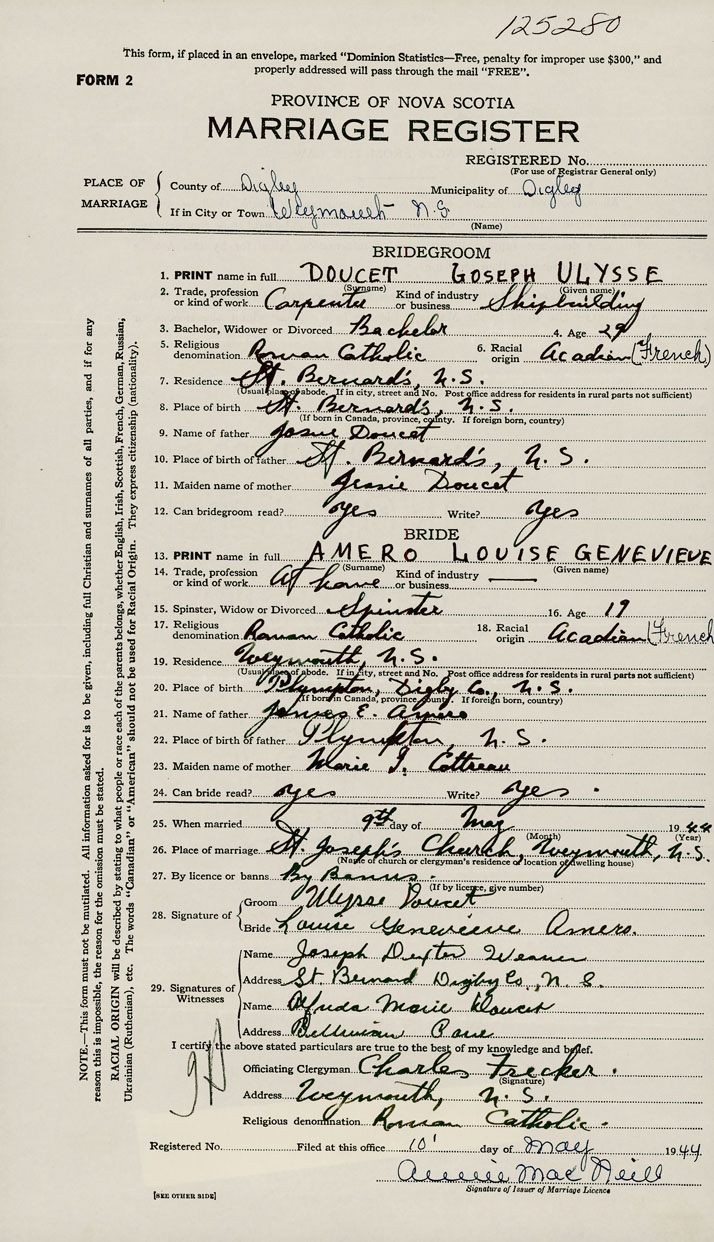 125280
This form, if placed in an envelope, marked "Dominion Statistics—Free, penalty for improper use $300," and
properly addressed will pass through the mail "FREE".
FORM 2
PROVINCE OF NOVA SCOTIA
MARRIAGE REGISTER
REGISTERED No.
(For use of Registrar General only)
PLACE OF MARRIAGE
County of Digby Municipality of Digby
If in City or Town Weymouth N.S
(Name)
BRIDEGROOM
1. PRINT name in full DOUCET GOSEPH ULYSSE
(Surname) (Given name)
2. Trade, profession or kind of work Carpenter Kind of industry or business Shipbuilding
3. Bachelor, Widower or Divorced Bachelor 4. Age 29
5. Religious denomination Roman Catholic 6. Racial origin Acadian (French)
7. Residence St. Bernard's, N.S.
(Usual place of abode. If in city, street and No. Post office address for residents in rural parts not sufficient)
8. Place of birth St. Bernard's, N.S.
(If born in Canada, province, county. If foreign born, country)
9. Name of father Josue Doucet
10. Place of birth of father St. Bernard's, N.S.
11. Maiden name of mother Jessie Doucet
12. Can bridegroom read? yes Write? yes
BRIDE
13. PRINT name in full AMERO LOUISE GENEVIEVE
(Surname) (Given name)
14. Trade, profession or kind of work At home Kind of industry or business —
15. Spinster, Widow or Divorced Spinster 16. Age 19
17. Religious denomination Roman Catholic 18. Racial origin Acadian (French
19. Residence Weymouth, N.S.
(Usual place of abode. If in city, street and No. Post office address for residents in rural parts not sufficient)
20. Place of birth Plympton, Digby Co., N.S.
(If born in Canada, province, county. If foreign born, country)
21. Name of father James E. Amero
22. Place of birth of father Plympton, N.S.
23. Maiden name of mother Marie J. Cottreau
24. Can bride read? yes Write? yes.
25. When married 9th day of May 1944
(Month) (Year)
26. Place of marriage St. Joseph's Church, Weymouth, N.S.
(Name of church or clergyman's residence or location of dwelling house)
27. By licence or banns By Banns.
(If by licence, give number)
28. Signature of
Groom Ulysse Doucet
Bride Louise Genevieve Amero.
29. Signatures of Witnesses
Name Joseph Dexter Weaver
Address St Bernard Digby Co., N.S.
Name Alfreda Marie Doucet
Address Belliveau Cove
I certify the above stated particulars are true to the best of my knowledge and belief.
Officiating Clergyman Charles Frecker.
(Signature)
Address Weymouth, N.S.
Religious denomination Roman Catholic.
Registered No. Filed at this office 10' day of May 1944
Annie Mac Neill
Signature of Issuer of Marriage Licence
[SEE OTHER SIDE]
NOTE.—This form must not be mutilated. All information asked for is to be given, including full Christian and surnames of all parties, and if for any
reason this is impossible, the reason for the omission must be stated.
RACIAL ORIGIN will be described by stating to what people or race each of the parents belongs, whether English, Irish, Scottish, French, German, Russian,
Ukrainian (Ruthenian), etc. The words "Canadian" or "American" should not be used for Racial Origin. They express citizenship (nationality).